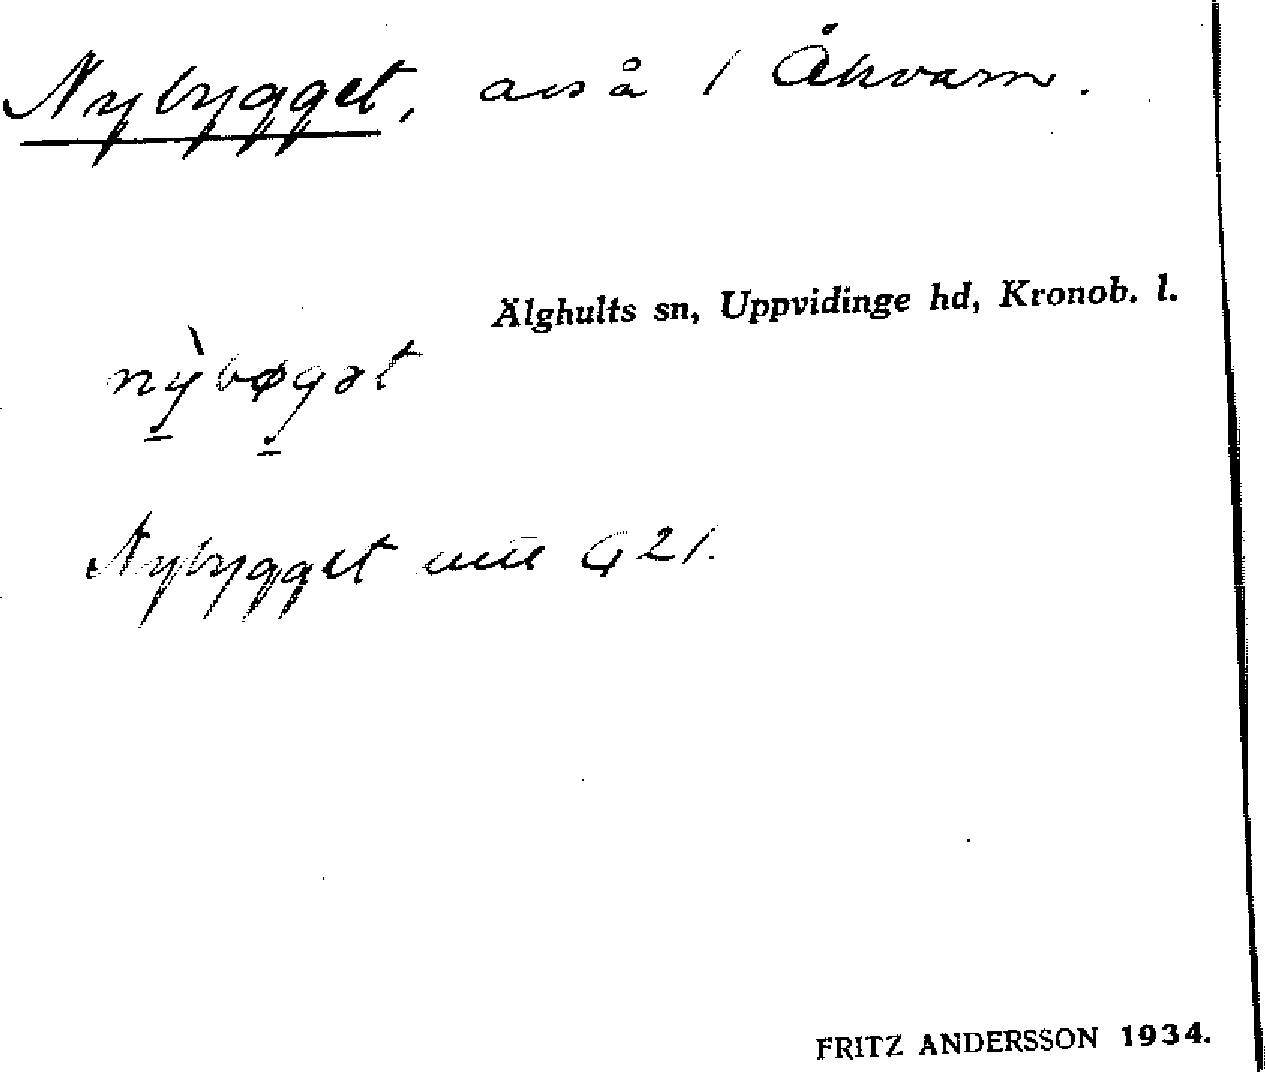 Nybygget, avs å 1 Åkvarn.
Älghults sn, Uppvidinge hd, Kronob. l.
nỳbøgət
Nybygget G 21.
FRITZ ANDERSSON 1934.